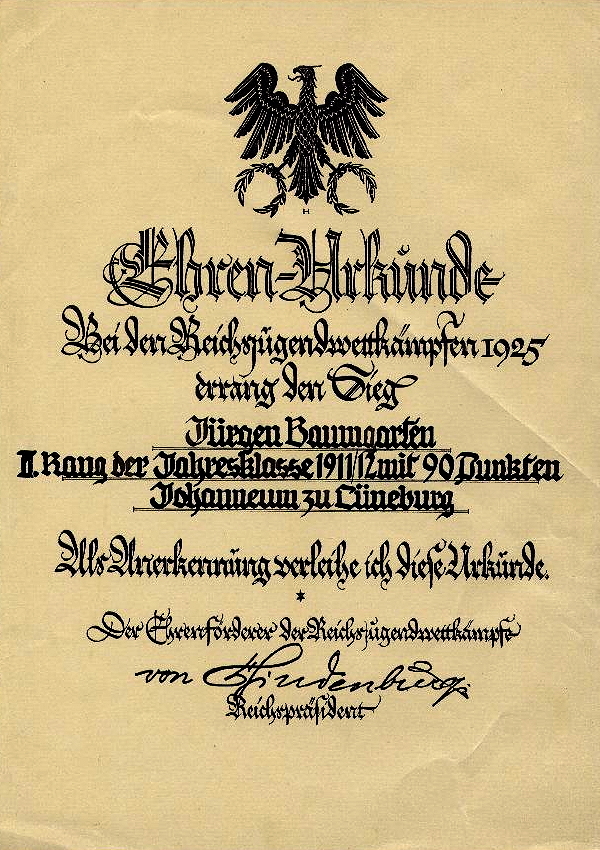 H
Ehren-Urkunde
Bei den Reichsjugendwettkämpfen 1925
errang den Sieg
Jürgen Baumgarten
II. Rang der Jahresklasse 1911/12 mit 90 Punkten
Johanneum zu Lüneburg
Als Anerkennung verleihe ich diese Urkunde.
*
Der Ehrenförderer der Reichsjugendwettkämpfe
von Hindenburg.
Reichspräsident